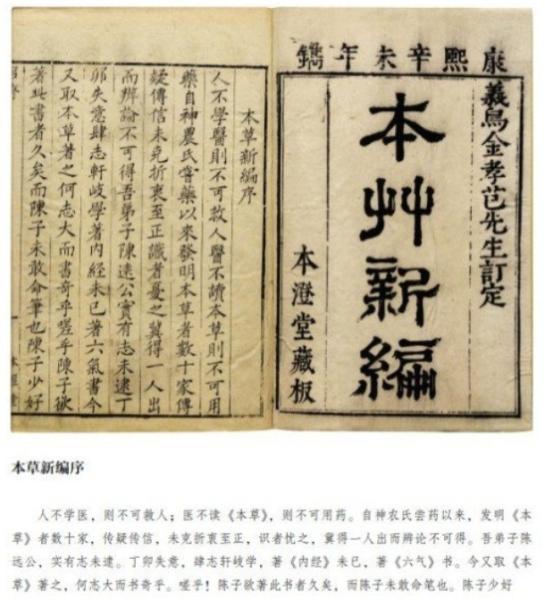 康熙辛未年鐫
義烏金孝芑先生訂定
本艸新編
本澄堂藏板
本草新編序
人不學醫則不可救人醫不讀本草則不可用
藥自神農氏嘗藥以來發明本草者數十家傳
疑傳信未克折衷至正識者憂之冀得一人出
而辨論不可得吾弟子陳遠公實有志未逮丁
卯失意肆志軒岐學著內經未已著六氣書今
又取本草著之何志大而書奇乎嗟乎陳子欲
著此書者久矣而陳子未敢命筆也陳子少好
本草新编序
人不学医，则不可救人；医不读《本草》，则不可用药。自神农氏尝药以来，发明《本
草》者数十家，传疑传信，未克折衷至正，识者忧之，冀得一人出而辨论不可得。吾弟子陈
远公，实有志未逮。丁卯失意，肆志轩岐学，著《内经》未已，著《六气》书。今又取《本
草》著之，何志大而书奇乎。嗟乎！陈子欲著此书者久矣，而陈子未敢命笔也。陈子少好